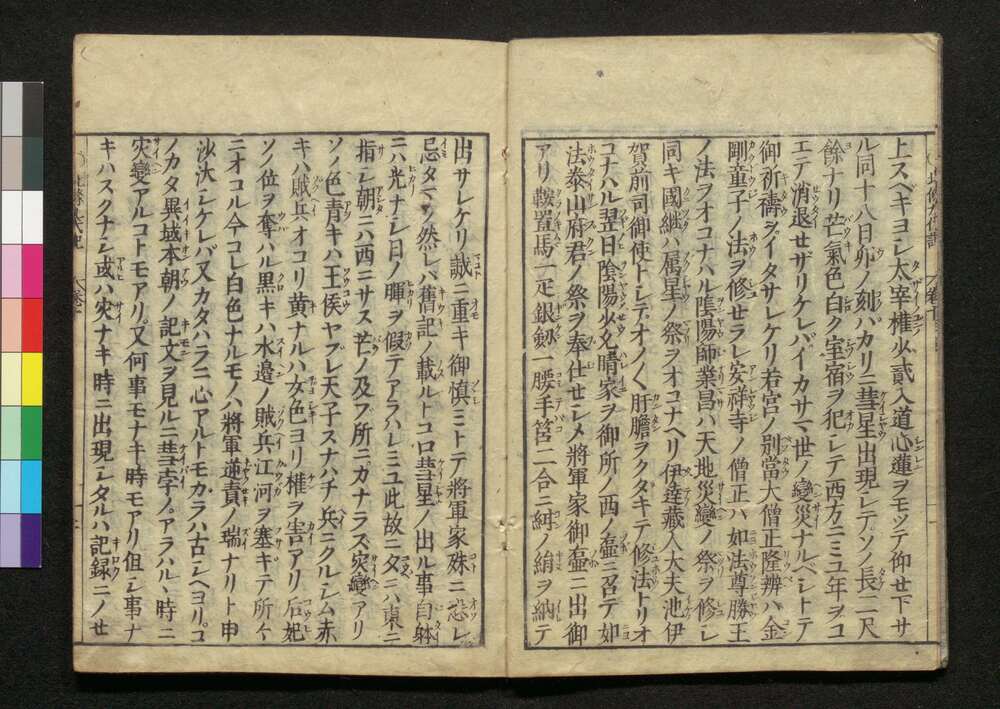 上スヘキヨシ太宰権少貳入道心蓮ヲモツテ仰せ下サ
ル同十八日卯ノ刻バカリニ彗星出現シテソノ長二尺
餘ナリ芒氣色白ク室宿ヲ犯シテ西方ニミユ年ヲコ
エテ消退せザリケレバイカサマ世ノ變災ナルベシトテ
御祈禱ヲイタサレケリ若宮ノ別當大僧正隆辨ハ金
剛童子ノ法ヲ修せラレ安祥寺ノ僧正ハ如法尊勝王
ノ法ヲオコナハル陰陽師業昌ハ天地災變ノ祭ヲ修シ
同キ國継ハ属星ノ祭ヲオコナヘリ伊達藏人大夫池伊
賀前司御使トシテオノ〱肝膽ヲクタキテ修法トリオ
コナハル翌日陰陽少允晴家ヲ御所ノ西ノ壷ニ召テ如
法泰山府君ノ祭ヲ奉仕せシメ將軍家御壷ニ出御
アリ鞍置馬一疋銀劔一腰手筥二合ニ絹ヲ納テ
出サレケリ誠ニ重キ御慎ミトテ將軍家殊ニ恐レ
忌タマフ然レハ舊記ノ載ルトコロ彗星ノ出ル事自躰
ニハ光ナシ日ノ暉ヲ假テアラハレミユ此故ニ夕ニハ東ニ
指シ朝ニハ西ニサス芒ノ及フ所ニカナラス災變アリ
ソノ色青キハ王侯ヤブレ天子スハナチ兵ニクルシム赤
キハ賊兵オコリ黄ナルハ女色ヨリ権ヲ害アリ后妃
ソノ位ヲ奪ハル黒キハ水邊ノ賊兵江河ヲ塞キテ所々
ニオコル今コレ白色ナルモノハ將軍逆責ノ瑞ナリト申
沙汰シケレバ又カタハラニ心アルトモカラハ古シヘヨリコ
ノカタ異域本朝ノ記文ヲ見ルニ彗字ノアラハル丶時ニ
災變アルコトモアリ又何事モナキ時モアリ但シ事ナ
キハスクナシ或ハ災ナキ時ニ出現シタルハ記録ニノせ